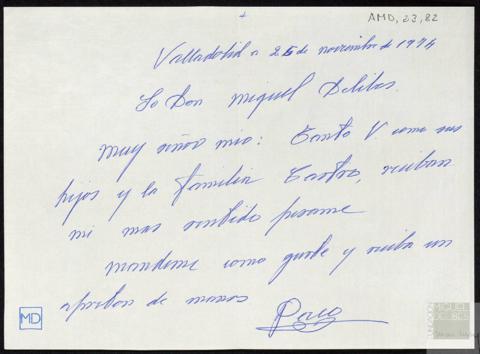 AMD, 23, 82
Valladolid a 25 de noviembre de 1974
Sr Don Miguel Delibes.
Muy señor mio: Tanto V como sus
hijos y la familia Castro, reciban
mi mas sentido pesame
mandeme como guste y reciba un
apreton de manos
Paco
MD
FUNDACIÓN
MIGUEL
DELIBES